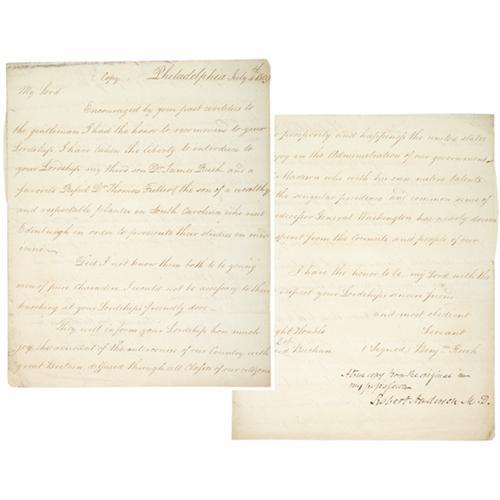 Copy. Philadelphia July
My Lord
Encouraged by your past civilities to
the gentlemen I had the honor to recommend to your
Lordship I have taken the liberty to introduce to
your Lordship my third son Dr. James Rush and a
favorite Pupil Dr. Thomas Fuller the son of a wealthy
and respectable planter in South Carolina who visit
Edinburgh in order to prosecute their studies in medi
cine.
Did I not know them both to be young
men of pure character I would not be accessary to their
knocking at your Lordships friendly door.
They will inform your Lordship how much
joy the account of the of our Country with
great Britain diffused through all Classes of our citizens
prosperity and happiness the united states
joy in the Administration of our government
Madison who with his own native talents
the singular prudence and common sense of
predecessor General Washington has nearly
from the Councils and people of our
I have the honor to be, my Lord with the
respect your Lordships sincere friend
and most obedient
Servant
ght Honble
Buchan (Signed) Benjn. Rush
A true copy from the original in
my possession
Robert Anderson M.D.